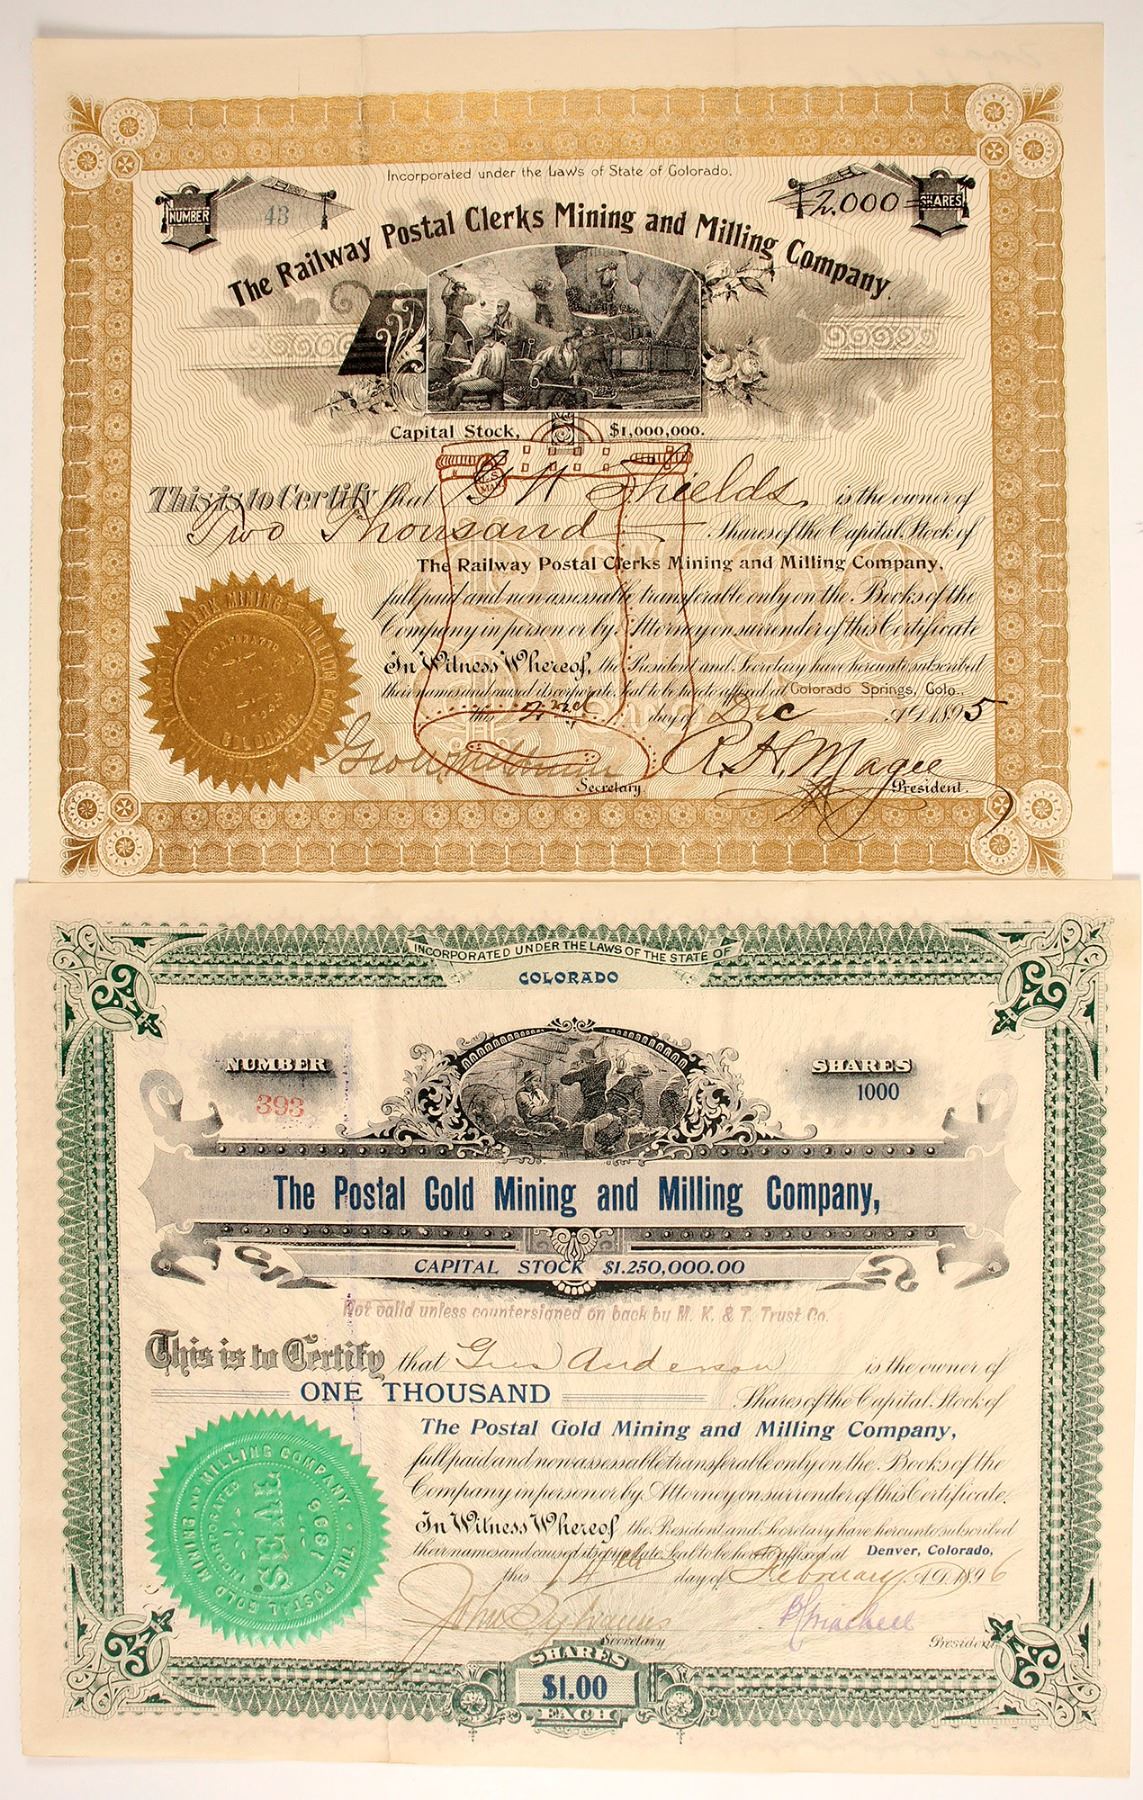 Incorporated under the Laws of State of Colorado.
NUMBER 43
2,000 SHARES
The Railway Postal Clerks Mining and Milling Company.
Capital Stock, $1,000,000.
U.S. MAIL
This is to Certify that G W Shields is the owner of
Two Thousand Shares of the Capital Stock of
The Railway Postal Clerks Mining and Milling Company,
full paid and non assessable transferable only on the Books of the
Company in person or by Attorney on surrender of this Certificate
In Witness Whereof, the President and Secretary have hereunto subscribed
their names and caused its corporate Seal to be hereto affixed at Colorado Springs, Colo.,
this 2nd day of Dec A.D. 1895
R. H. Magee
Secretary. President.
POSTAL CLERK MINING AND MILLING COMP.
INCORPORATED
COLORADO.
INCORPORATED UNDER THE LAWS OF THE STATE OF
COLORADO
NUMBER
393
SHARES
1000
The Postal Gold Mining and Milling Company,
CAPITAL STOCK $1.250,000.00
Not valid unless countersigned on back by M. K. & T. Trust Co.
This is to Certify that Gus Anderson is the owner of
ONE THOUSAND Shares of the Capital Stock of
The Postal Gold Mining and Milling Company,
full paid and non assessable transferable only on the Books of the
Company in person or by Attorney on surrender of this Certificate.
In Witness Whereof, the President and Secretary have hereunto subscribed
their names and caused its corporate Seal to be hereto affixed at Denver, Colorado,
this 14th day of February A.D. 1896
John Sylvanus
Secretary President
THE POSTAL GOLD MINING AND MILLING COMPANY.
INCORPORATED
SEAL
1896
SHARES
$1.00
EACH